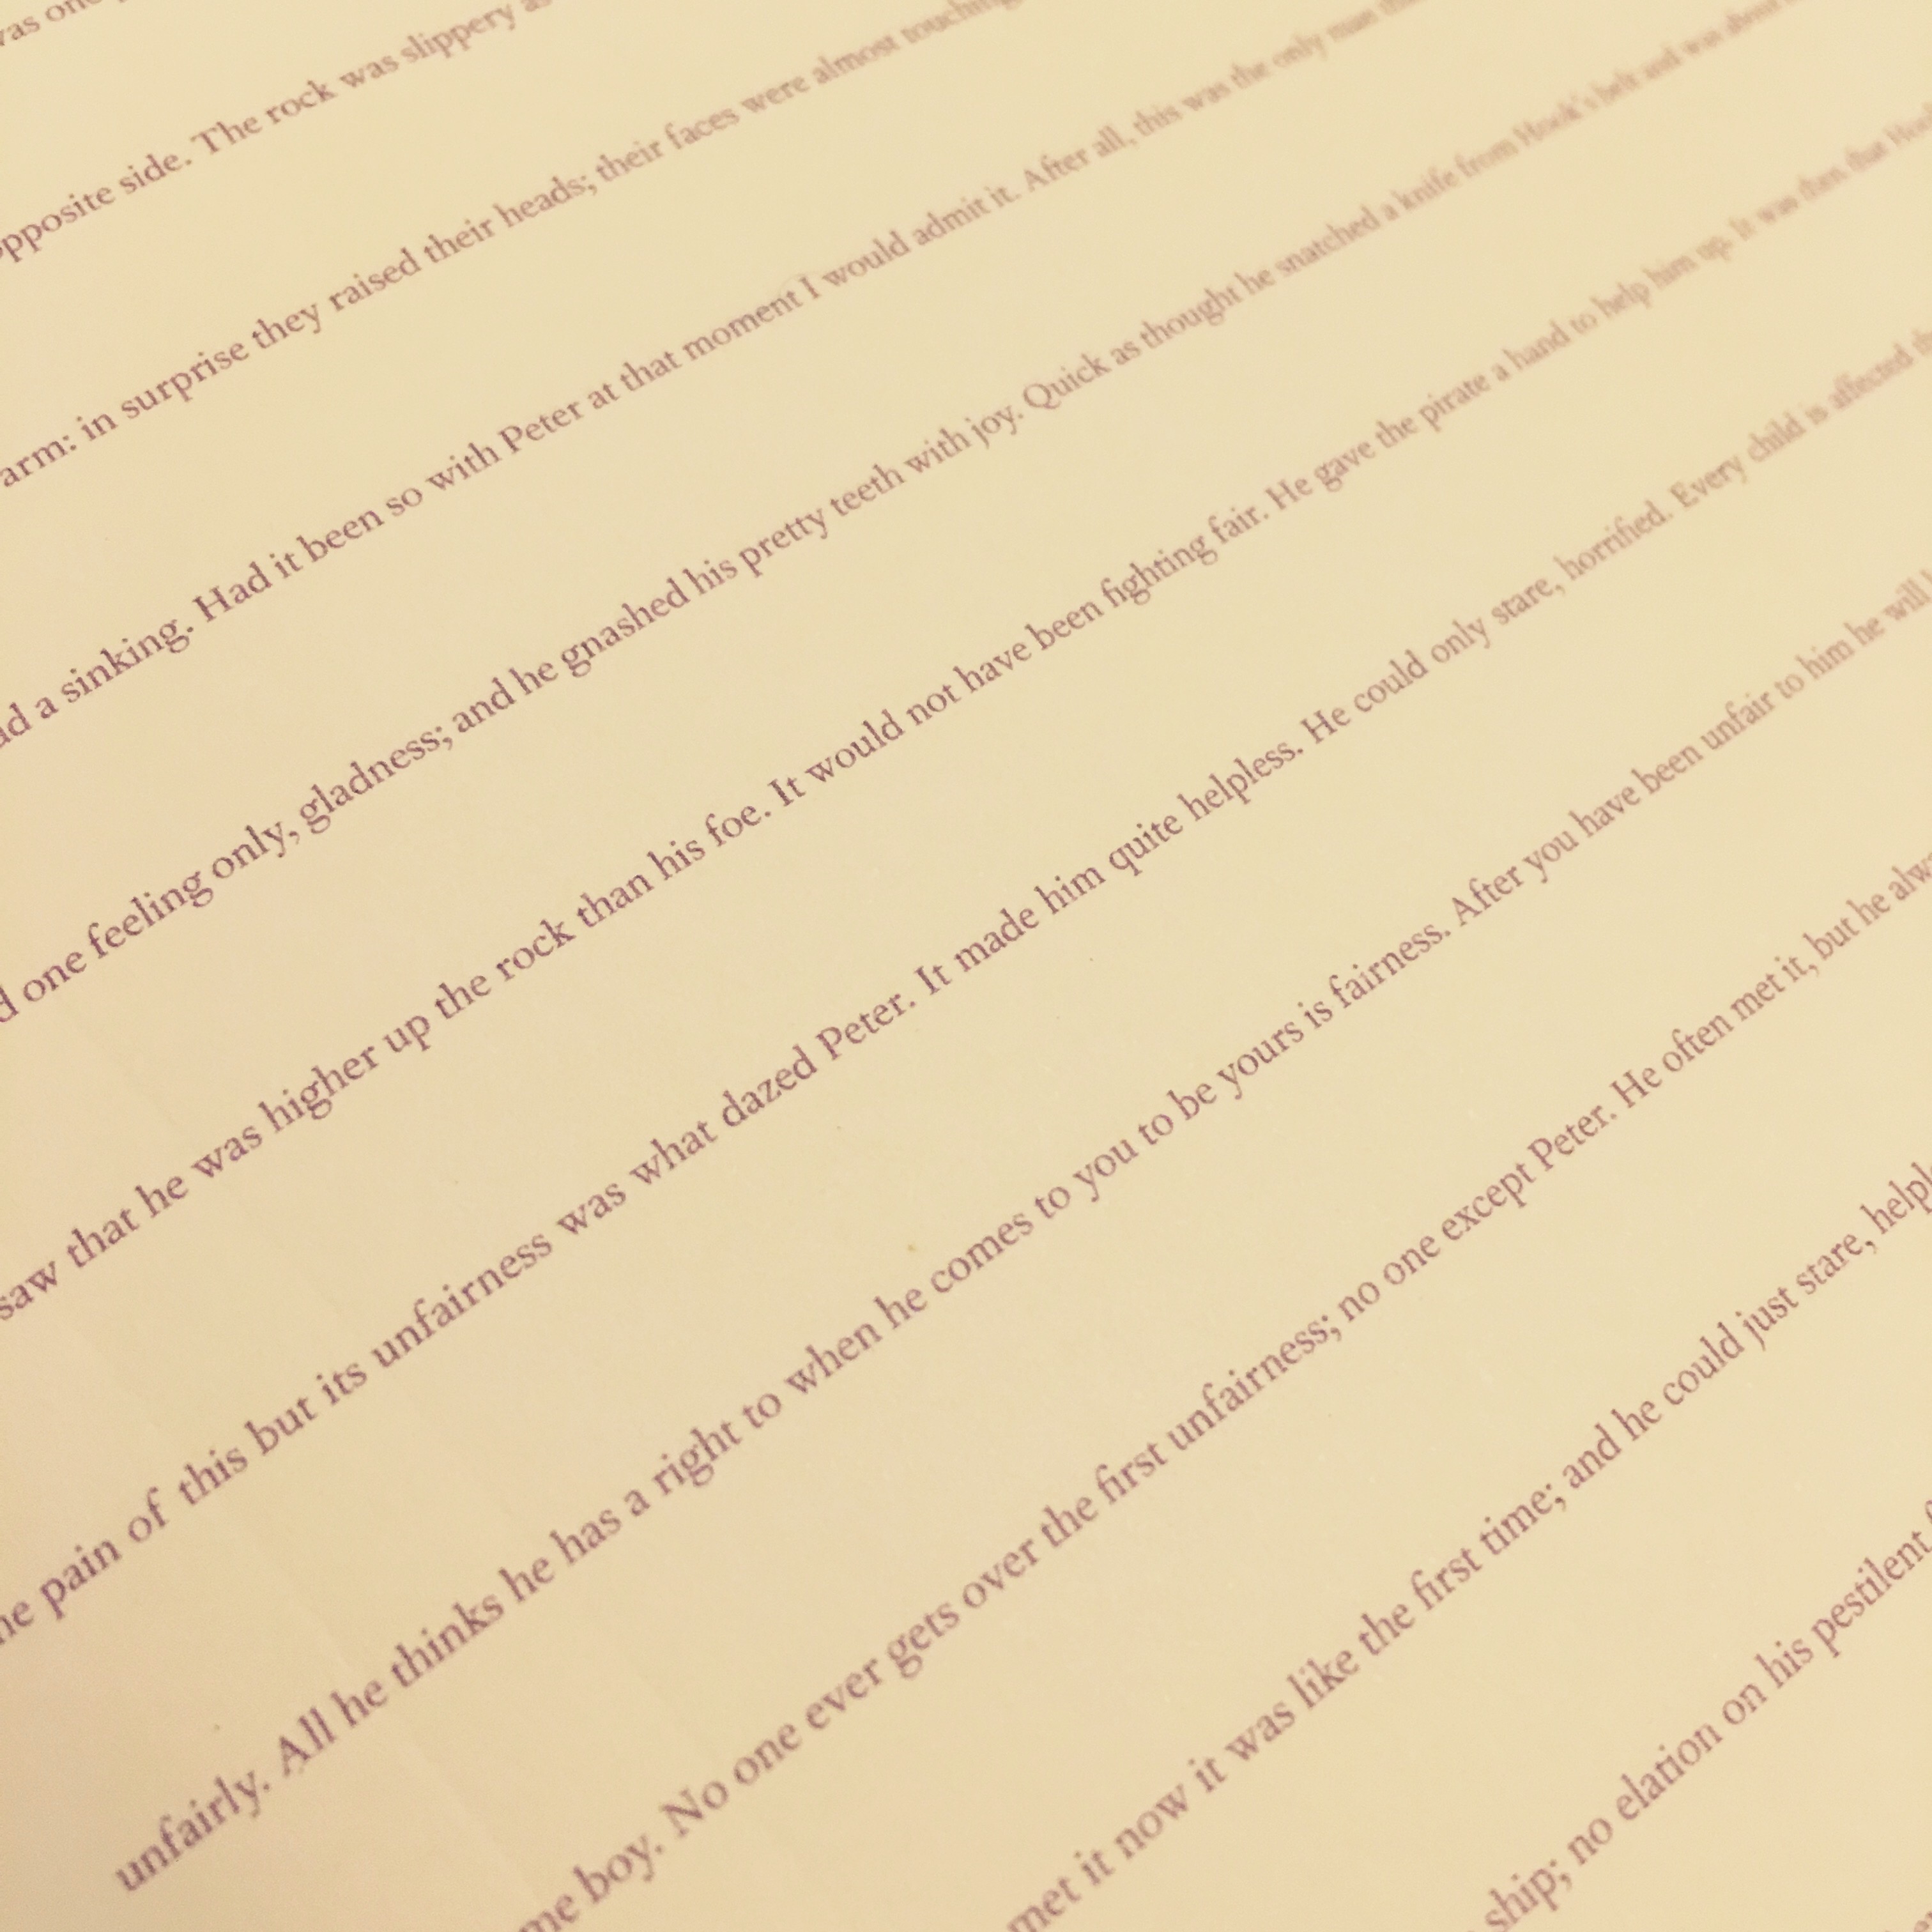 was one
opposite side. The rock was slippery as
arm: in surprise they raised their heads; their faces were almost touching
a sinking. Had it been so with Peter at that moment I would admit it. After all, this was the only man
one feeling only, gladness; and he gnashed his pretty teeth with joy. Quick as thought he snatched a knife from Hook's belt and was about
saw that he was higher up the rock than his foe. It would not have been fighting fair. He gave the pirate a hand to help him up. It was then that
pain of this but its unfairness was what dazed Peter. It made him quite helpless. He could only stare, horrified. Every child is affected
unfairly. All he thinks he has a right to when he comes to you to be yours is fairness. After you have been unfair to him he will
boy. No one ever gets over the first unfairness; no one except Peter. He often met it, but he
met it now it was like the first time; and he could just stare,
ship; no elation on his pestilent